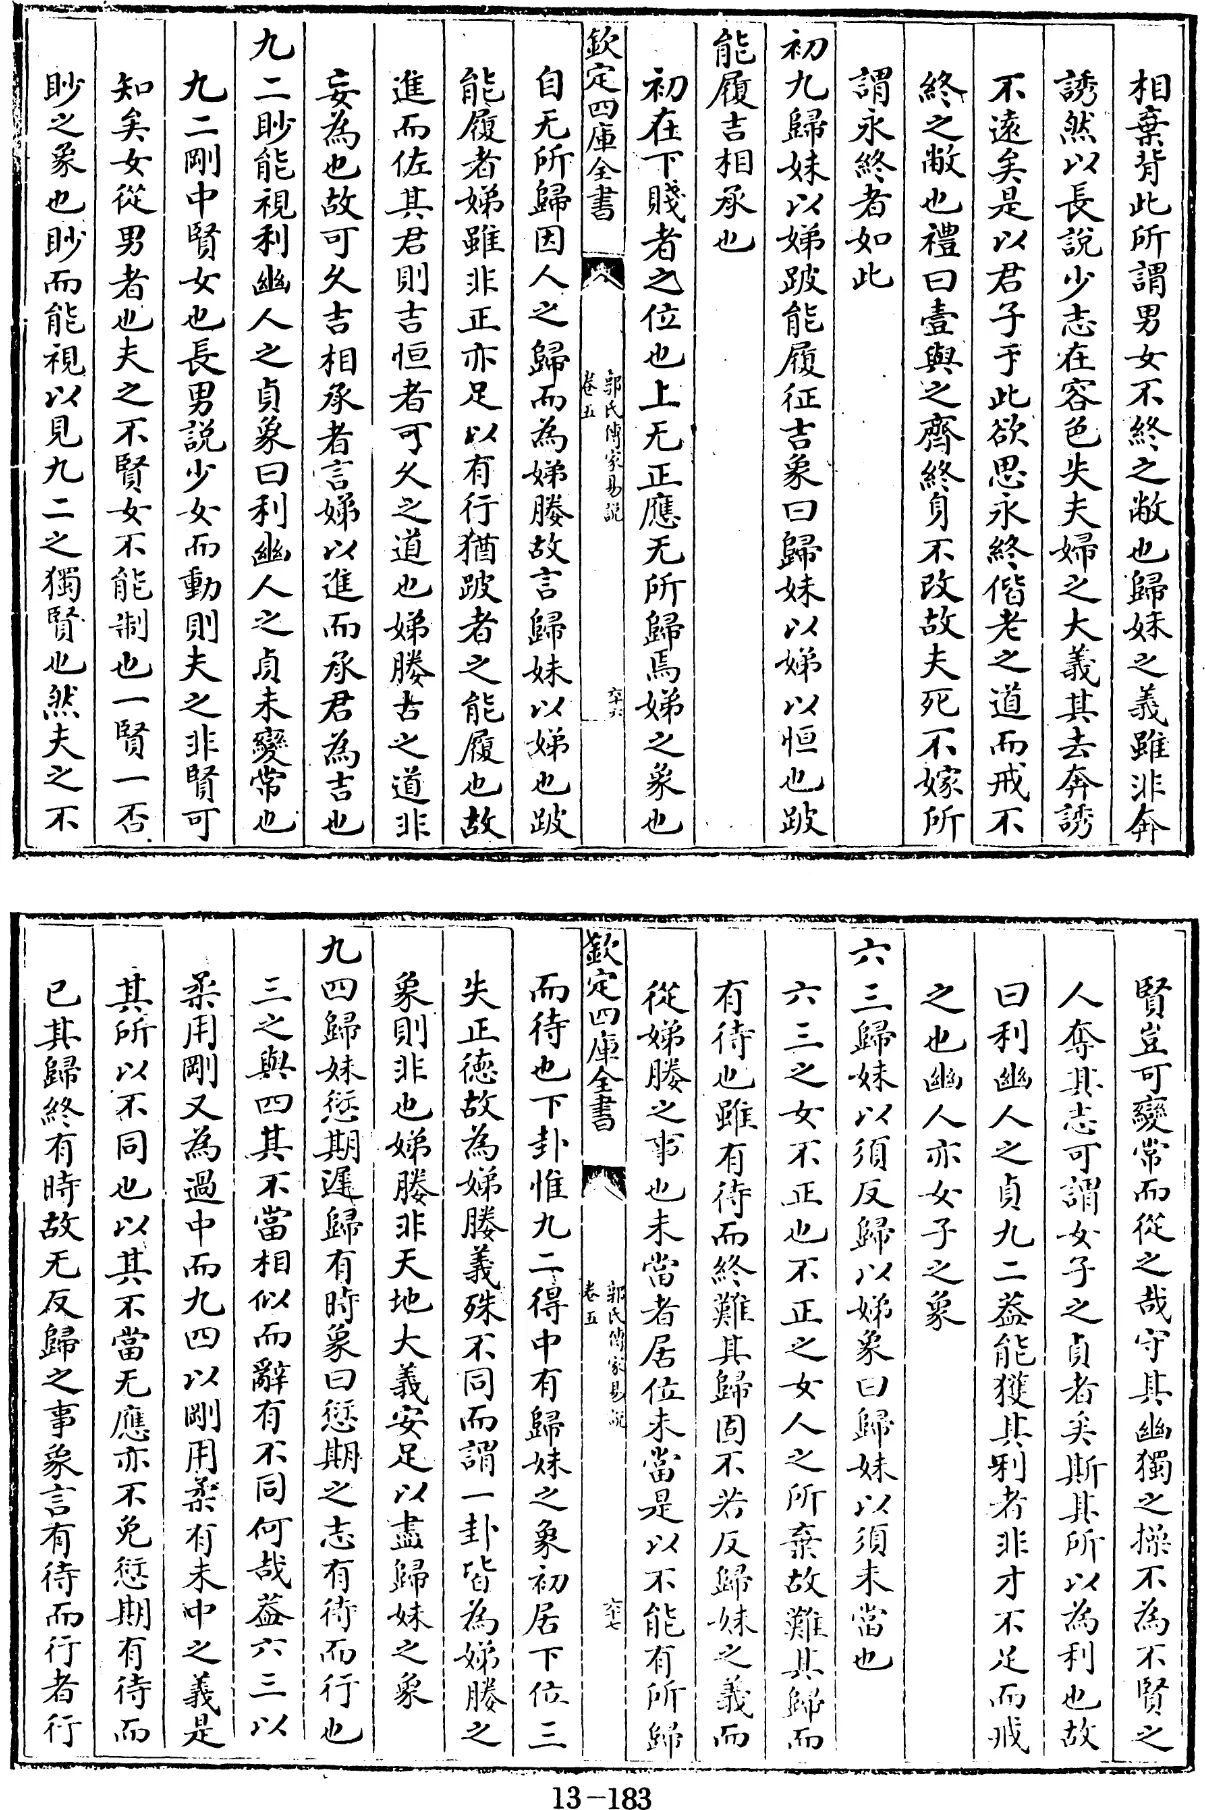 相棄背此所謂男女不終之敝也歸妹之義雖非奔
誘然以長說少志在容色失夫婦之大義其去奔誘
不遠矣是以君子于此欲思永終偕老之道而戒不
終之敝也禮曰壹與之齊終身不改故夫死不嫁所
謂永終者如此
初九歸妹以娣跛能履征吉象曰歸妹以娣以恒也跛
能履吉相承也
初在下賤者之位也上无正應无所歸焉娣之象也
欽定四庫全書
郭氏傳家易說
卷五
六十六
自无所歸因人之歸而為娣媵故言歸妹以娣也跛
能履者娣雖非正亦足以有行猶跛者之能履也故
進而佐其君則吉恒者可久之道也娣媵古之道非
妄為也故可久吉相承者言娣以進而承君為吉也
九二眇能視利幽人之貞象曰利幽人之貞未變常也
九二剛中賢女也長男說少女而動則夫之非賢可
知矣女從男者也夫之不賢女不能制也一賢一否
眇之象也眇而能視以見九二之獨賢也然夫之不
賢豈可變常而從之哉守其幽獨之操不為不賢之
人奪其志可謂女子之貞者矣斯其所以為利也故
曰利幽人之貞九二葢能獲其利者非才不足而戒
之也幽人亦女子之象
六三歸妹以須反歸以娣象曰歸妹以須未當也
六三之女不正也不正之女人之所棄故難其歸而
有待也雖有待而終難其歸固不若反歸妹之義而
從娣媵之事也未當者居位未當是以不能有所歸
欽定四庫全書
郭氏傳家易說
卷五
六十七
而待也下卦惟九二得中有歸妹之象初居下位三
失正德故為娣媵義殊不同而謂一卦皆為娣媵之
象則非也娣媵非天地大義安足以盡歸妹之象
九四歸妹愆期遲歸有時象曰愆期之志有待而行也
三之與四其不當相似而辭有不同何哉葢六三以
柔用剛又為過中而九四以剛用柔有未中之義是
其所以不同也以其不當无應亦不免愆期有待而
已其歸終有時故无反歸之事象言有待而行者行
13-183